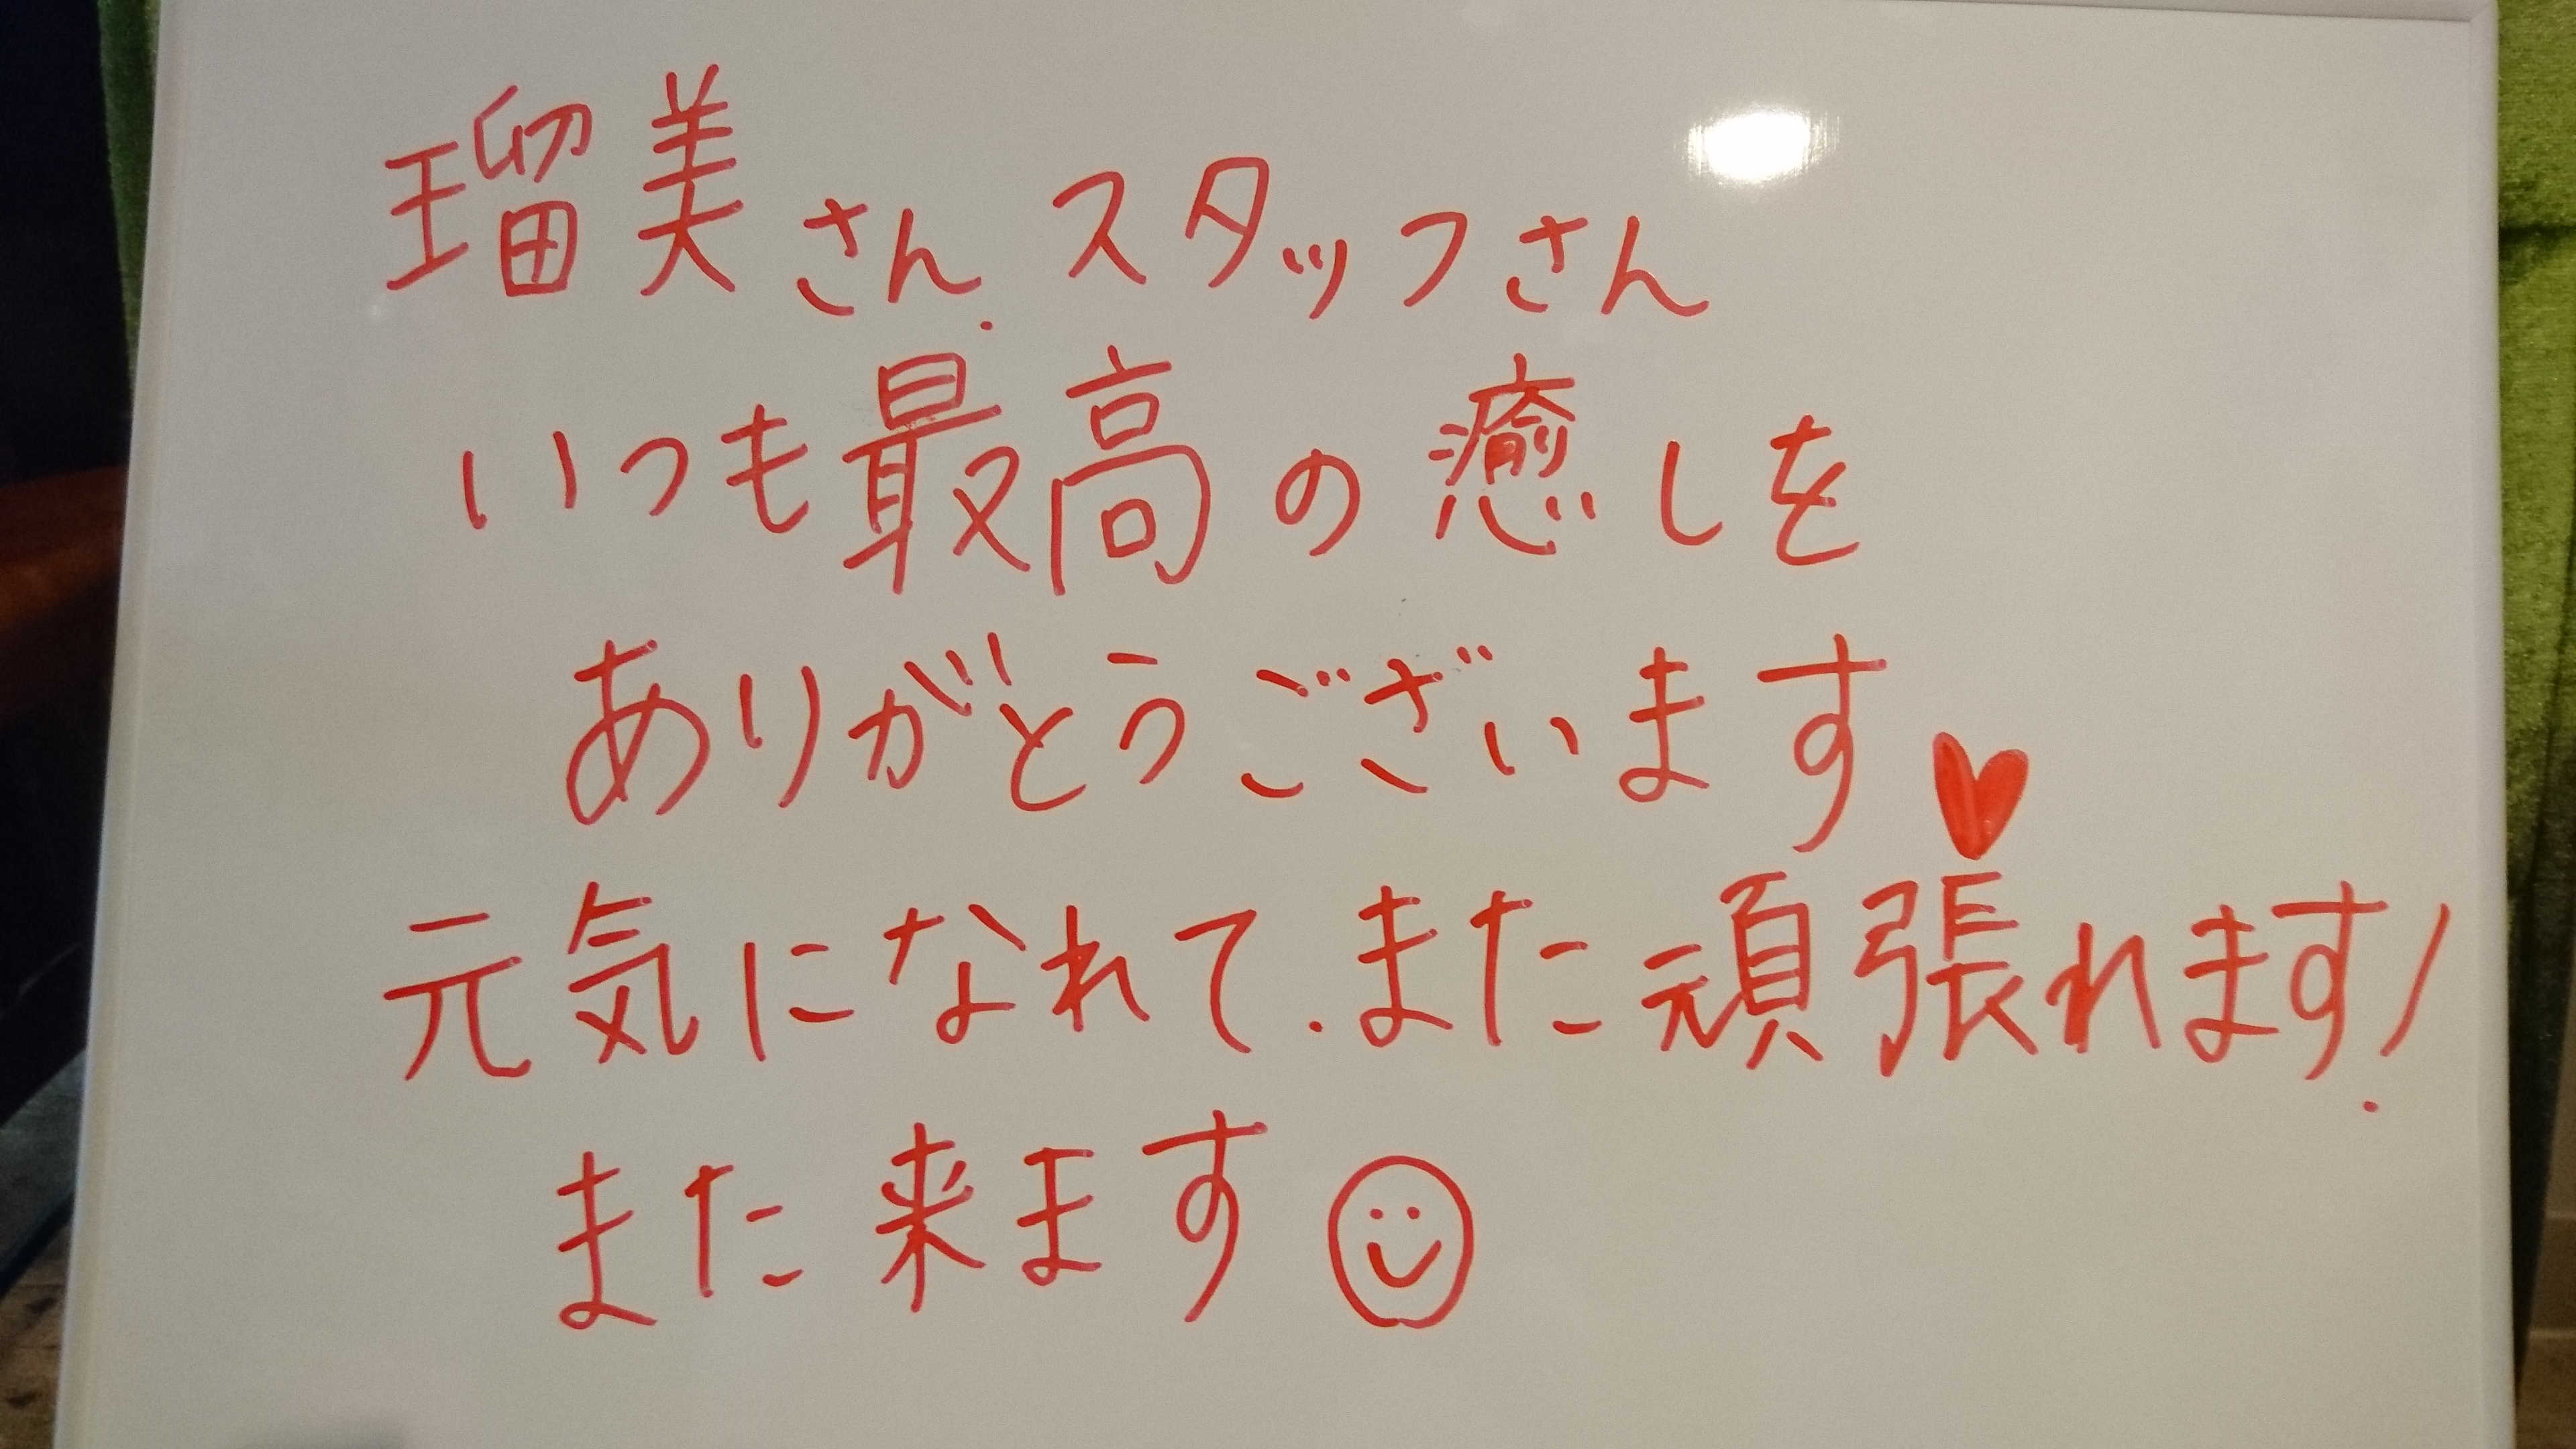 瑠美さん.スタッフさん
いつも最高の癒しを
ありがとうございます♥
元気になれて.また頑張れます!
また来ます☺